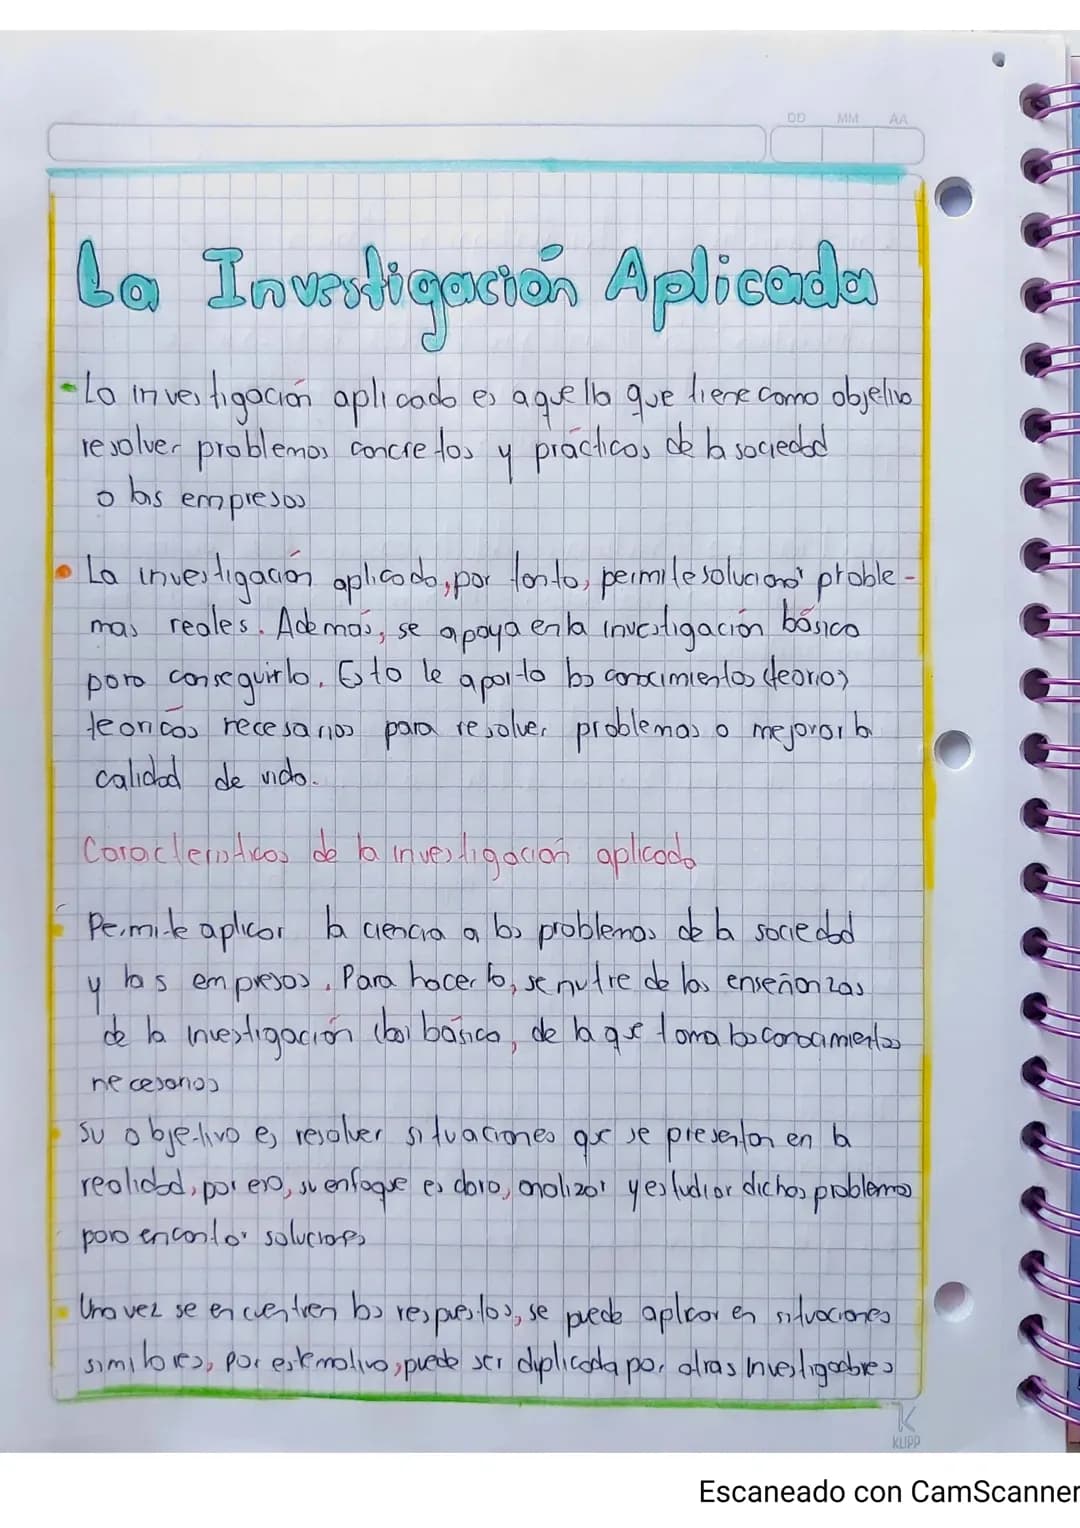 DD MM AA
La Investigación Aplicada
- La investigación aplicada es aquella que tiene como objetivo
resolver problemas concretos y prácticos de la sociedad
o las empresas
• La investigación aplicada, por tanto, permite solucionar proble-
mas reales. Además, se apoya en la investigación básica
para conseguirlo. Esto le aporta los conocimientos (teorio)
teoricos necesarios para resolver problemas o mejorar la
calidad de vida.
Caracteristicas de la investigación aplicada
Permite aplicar la ciencia a los problemas de la sociedad
y las empresas. Para hacerlo, se nutre de las enseñanzas
de la investigación básica, de la que toma los conocimientos
necesarios
Su objetivo es resolver situaciones que se presentan en la
realidad, por eso, su enfoque es claro, analizar y estudiar dichos problemas
para encontar soluciones
Una vez se encuentren las respuestas, se puede aplicar en situaciones
similares, por este motivo, puede ser duplicada por otras investigadores
K
KLIPP
Escaneado con CamScanner